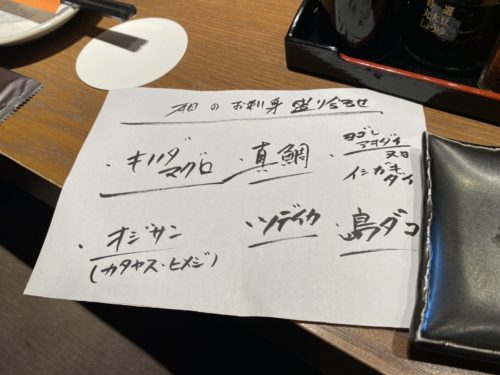 本日のお刺身盛り合わせ
・キハダ
マグロ
・真鯛
・ヨゴレ
アオダイ
又は
イシガキ
ダイ
・オジサン
(カタヤス・ヒメジ)
・ソデイカ
・島ダコ